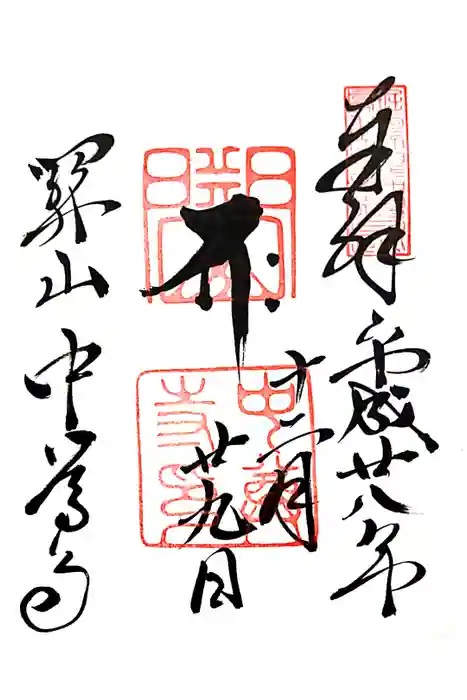 奉拝
平成廿八年
十二月
廿九日
関山
中尊寺